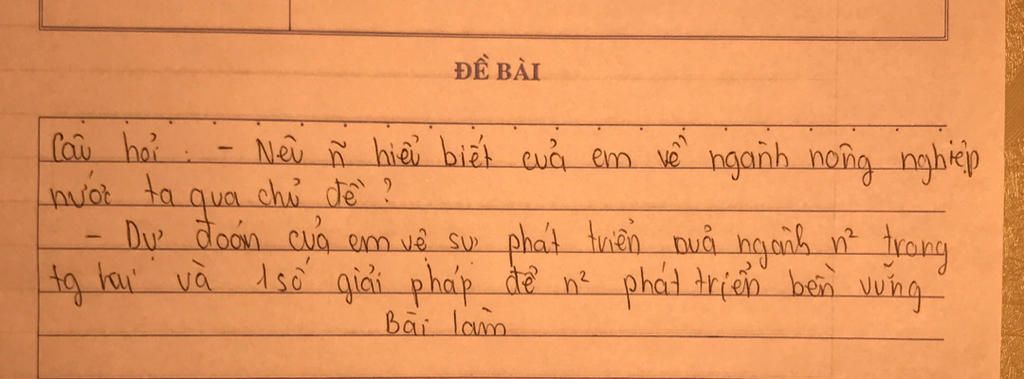 ĐỀ BÀI
Câu hỏi: - Nêu ñ hiểu biết của em về ngành nông nghiệp
nước ta qua chủ đề?
- Dự đoán của em về sự phát triển của ngành n² trong
tg lai và 1 số giải pháp để n² phát triển bền vững
Bài làm